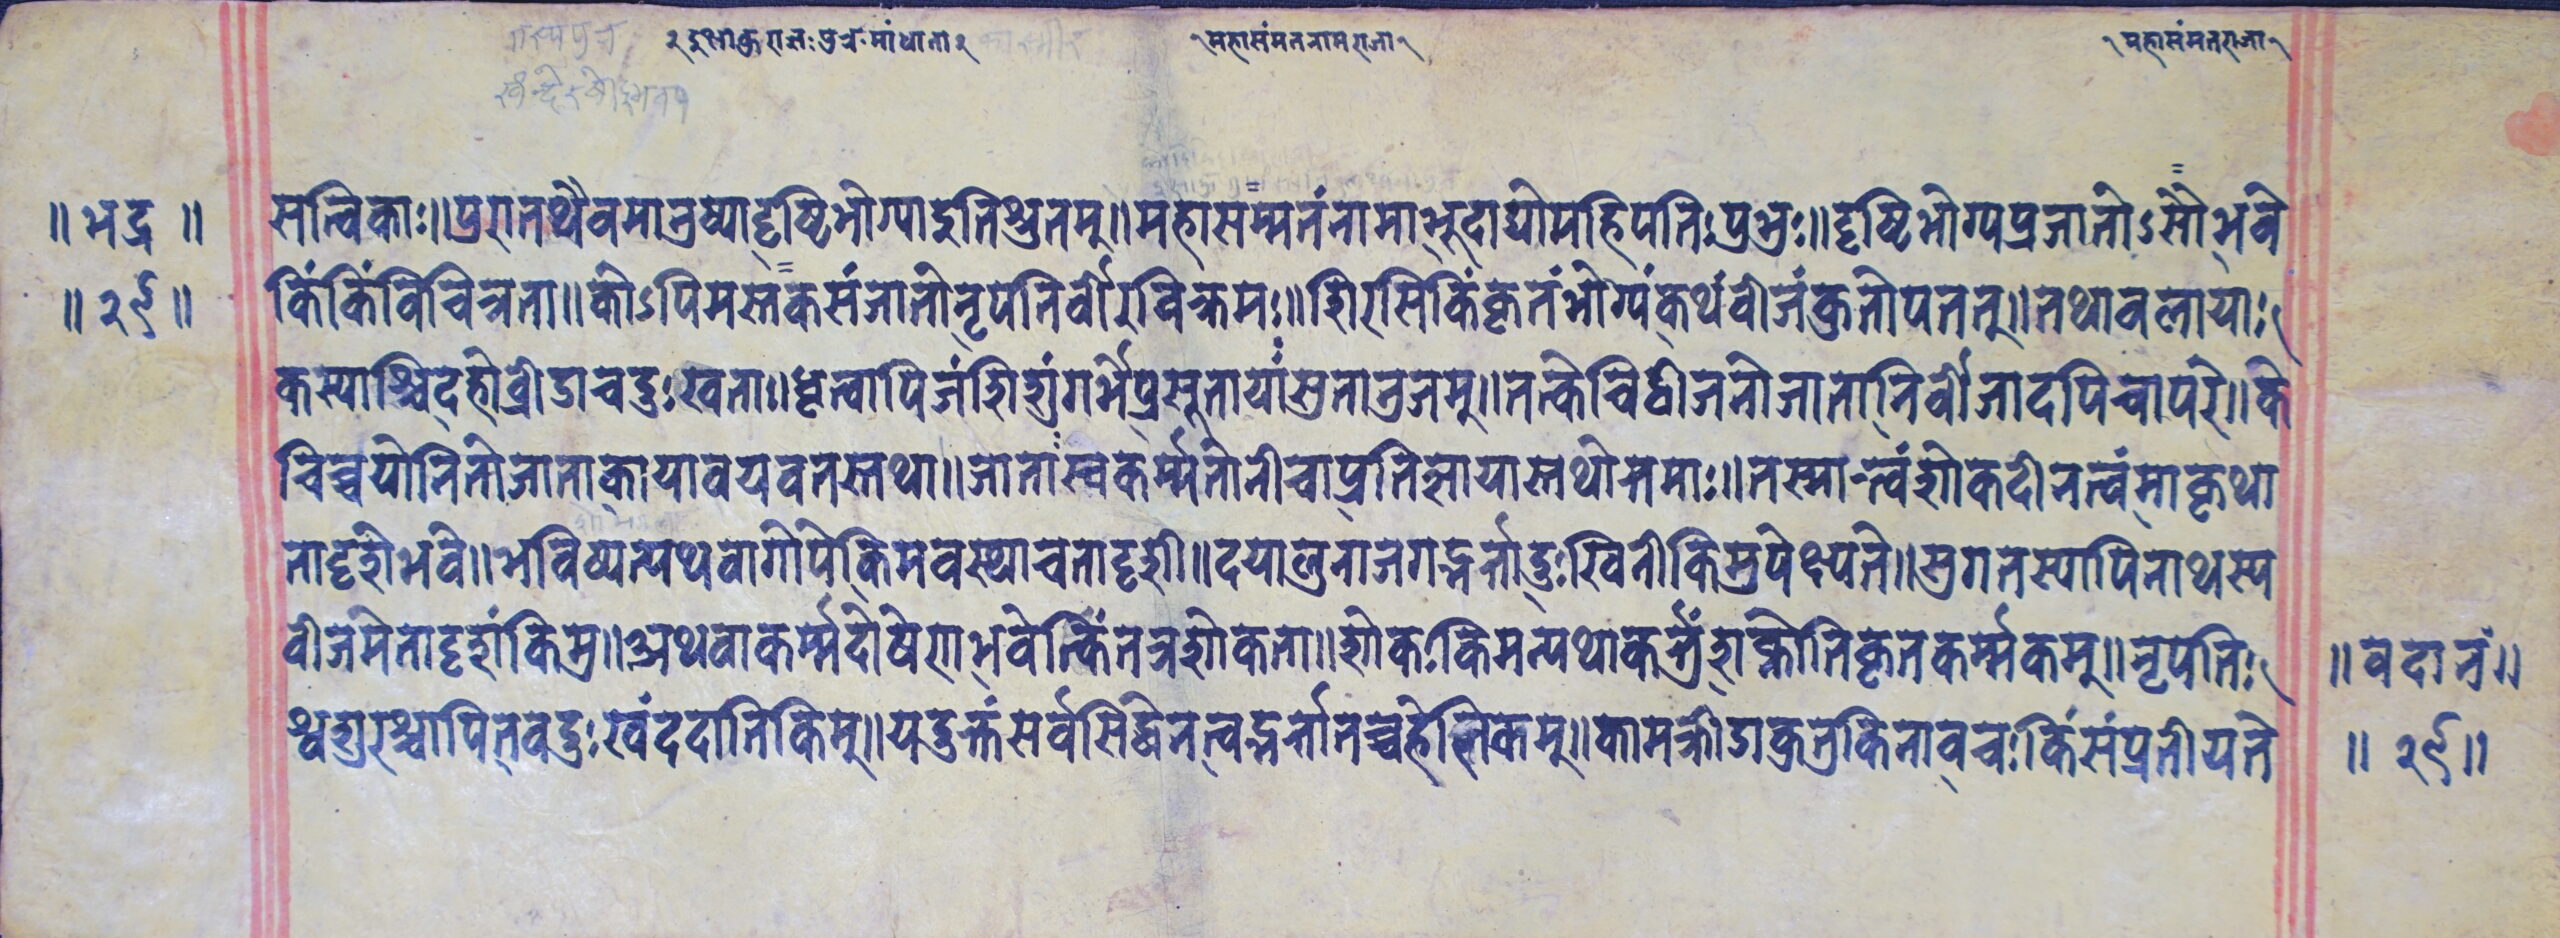 २इक्ष्वाकुराजःपुत्रःमांधाता२ १महासंमतनामराजा१ १महासंमतराजा१
॥भद्र॥ सत्विकाः॥पुरातथैवमानुष्यादृष्टिभोग्यादुतिश्रुतम्॥महासम्मतंनामाभूदाद्योमहिपतिःप्रभुः॥दृष्टिभोग्यप्रजातोऽसौभवे
॥२९॥ किंकिंविचित्रता॥कोऽपिमस्तकसंजातोनृपतिर्वीरविक्रमः॥शिरसिकिंकृतंभोग्यंकथंवीजंकुतोपतत्॥तथावलायाः
कस्याश्चिदहोव्रीडाचदुःखता॥धृत्वापिजंशिशुंगर्भेप्रसूतायांसुतानुजम्॥तत्केचिद्वीजतोजातानिर्वीजादपिचापरे॥के
चिच्चयोनितोजाताकायावयवतस्तथा॥जाताःस्वकर्म्मतोनीचाप्रतिज्ञायास्तथोत्तमाः॥तस्मात्त्वंशोकदीनत्वंमाकृथा
तादृशेभवे॥भविष्यत्यथवागोपेकिमवस्थाचतादृशी॥दयालुनाजगद्भर्त्रादुःखिनीकिमुपेक्ष्यते॥सुगतस्यापिनाथस्य
वीजमेतादृशंकिमु॥अथवाकर्म्मदोषेणभवेत्किंतत्रशोकता॥शोकःकिमन्यथाकर्त्तुंशक्नोतिकृतकर्म्मकम्॥नृपतिः ॥वदानं॥
श्वशुरश्चापितवदुःखंददातिकिम्॥यदुक्तंसर्वसिद्धेनत्वद्भर्त्तातच्चहेत्निकम्॥कामक्रीडाकुतुकिनावचःकिंसंप्रतीयते ॥२९॥